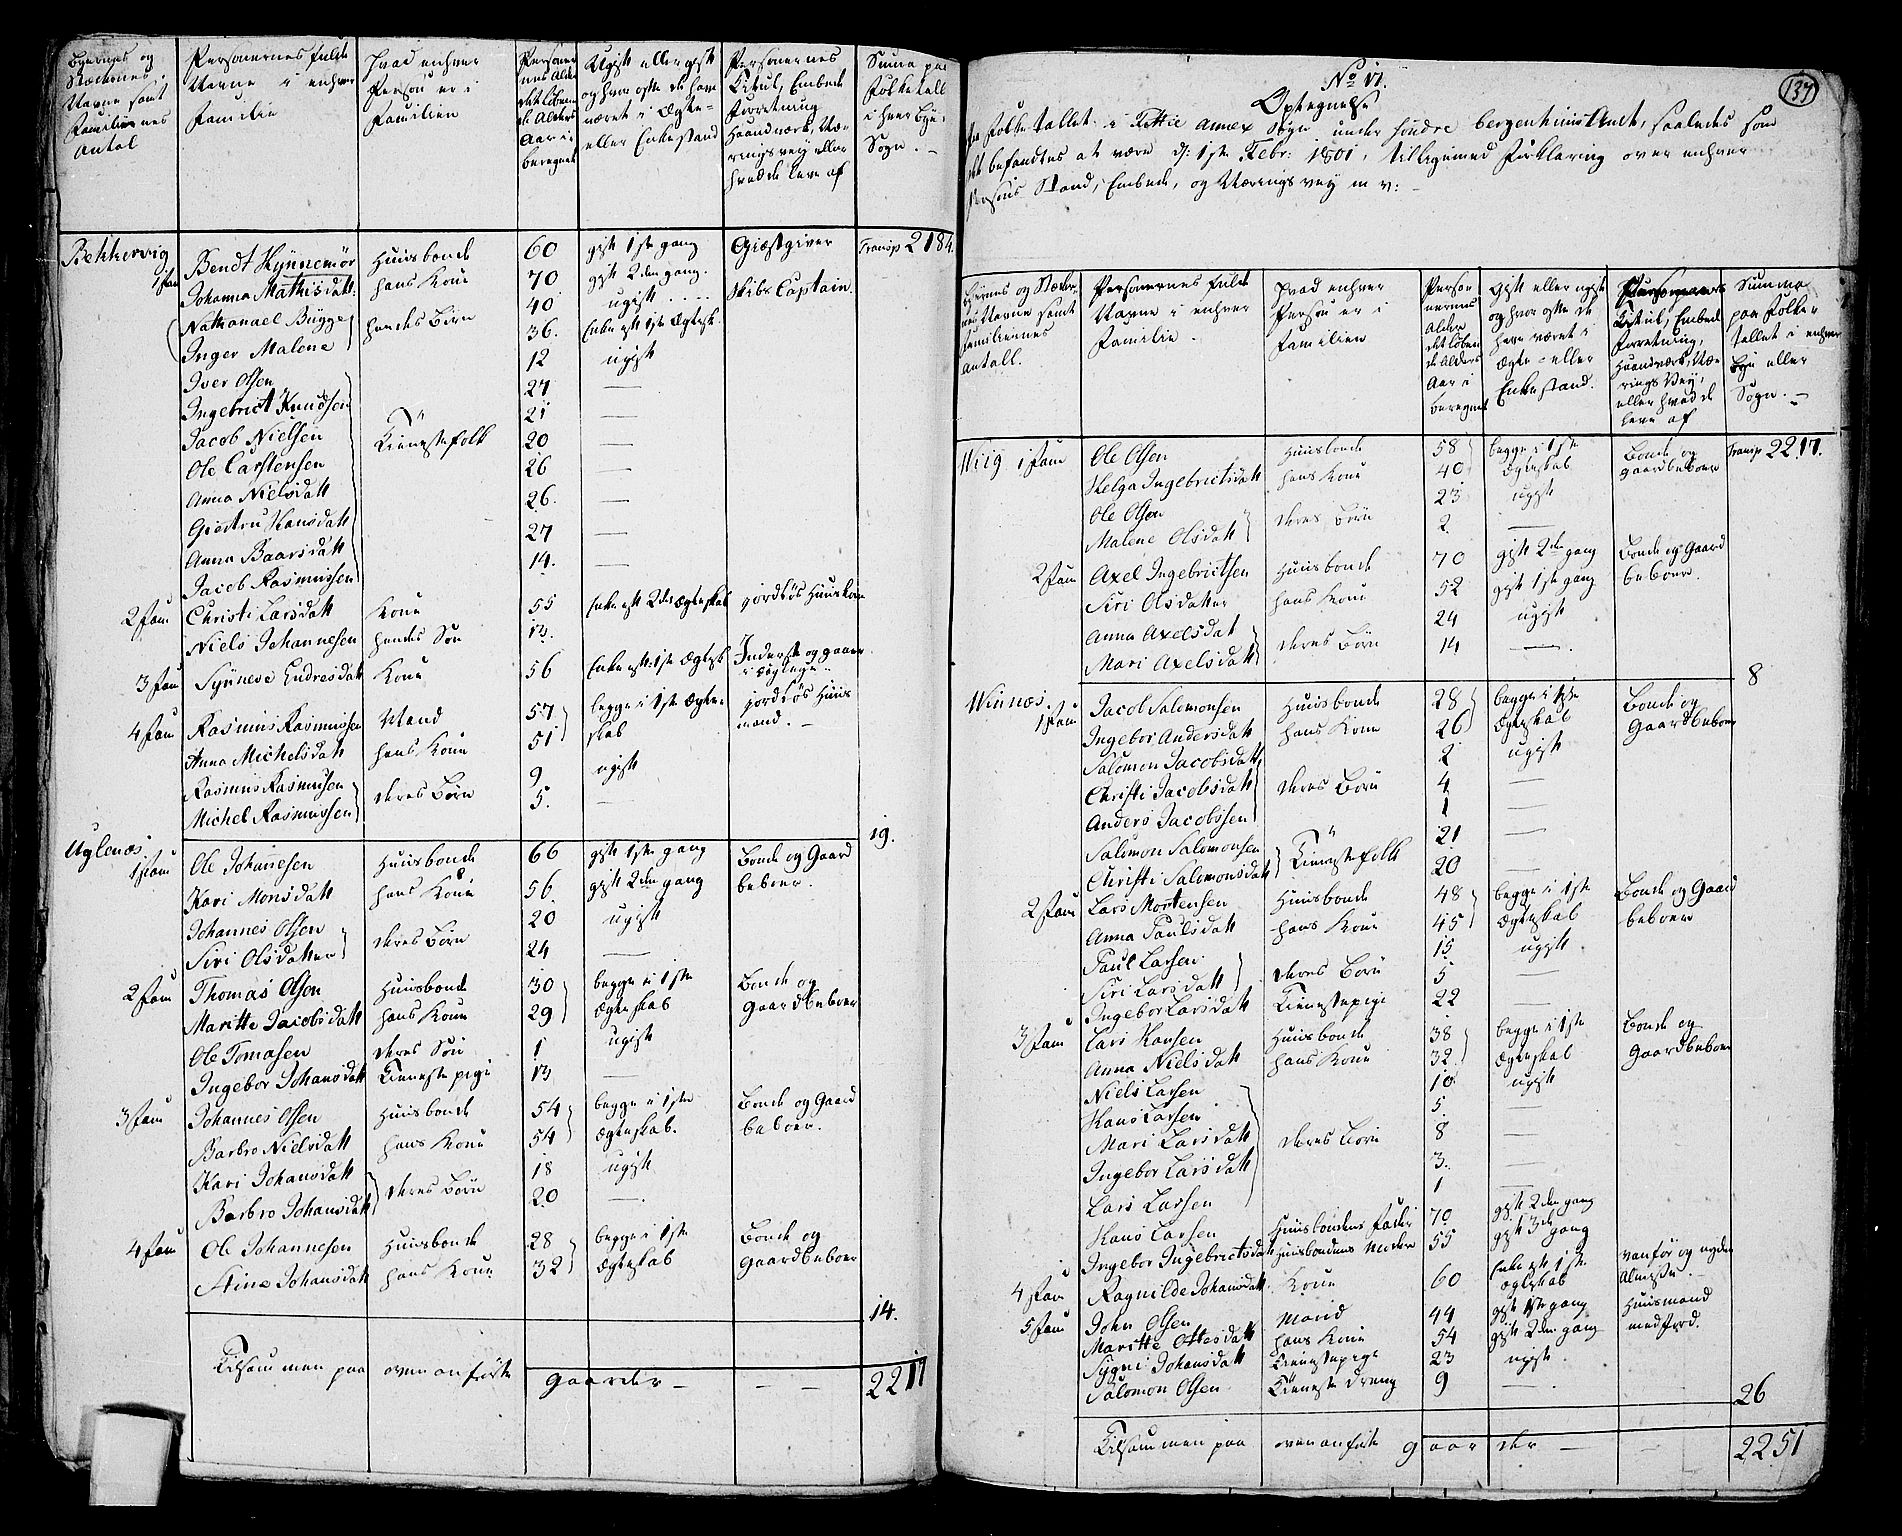 Byernes og
Stædernes
Navne samt
Familiernes
Antal
Personernes fulde
Navne i enhver
Familie
Hvad enhver
Person er i
Familien
Personer
nes Alder
det løben
de Alders
Aar i
beregnet
Ugift eller gift
og hvor ofte de have
været i Ægte-
eller Enkestand
Personernes
Titul, Embede
Forretning
Haandværk, Næ-
ringsvey eller
hvad de leve af
Summa paa
Folketall
i hver Bye,
Sogn. -
Bekkervig
1 Fam Bendt Hynnemør Huusbonde 60 gift 1ste gang Giæstgiver Transp 2184.
Johanna Mathisdatt: hans Kone 70 gift 2den gang.
Nathanael Bugge hendes Børn 40 ugift .... Skibs Captain.
Inger Malene 36. Enke eft 1ste Ægtesk.
Iver Olsen 12 ugift
Ingebrict Knudsen 27 —
Jacob Nielsen Tienestefolk 21 —
Ole Carstensen 20 —
Anna Nielsdatt 26 —
Giertru Hansdatt 26. —
Anna Baarsdatt 27 —
Jacob Rasmussen 14. —
2 Fam Christi Larsdatt Kone 55 Enke eft 2det Ægteskab jordløs Huuskone
Niels Johannesen hendes Søn 13.
3 Fam Synneve Endresdatt Kone 56 Enke eft: 1ste Ægtesk Inderst og gaaer
i Dagleye
4 Fam Rasmus Rasmussen Mand 57 begge i 1ste Ægte- jordløs Huus
Anna Michelsdatt hans Kone 51 skab mand. -
Rasmus Rasmusen deres Børn 9 ugift
Michel Rasmussen 5. —
19.
Uglenæs
1 Fam Ole Johannesen Huusbonde 66 gift 1ste gang Bonde og Gaard
Kari Monsdatt hans Kone 56. gift 2den gang beboer.
Johannes Olsen deres Børn 20 ugift
Siri Olsdatter 24 —
2 Fam Thomas Olsen Huusbonde 30 begge i 1ste Bonde og
Maritte Jacobsdatt hans Kone 29 Ægteskab Gaardbeboer
Ole Tomasen deres Søn 1 ugift
Ingebor Johansdatt Tieneste pige 13 —
3 Fam Johannes Olsen Huusbonde 54 begge i 1ste Bonde og Gaard
Barbro Nielsdatt hans Kone 54 Ægteskab. beboer.
Kari Johansdatt deres Børn 18 ugift
Barbro Johansdatt 20 —
4 Fam Ole Johannesen Huusbonde 28 begge i 1ste Bonde og
Stine Johansdatt hans Kone 32 Ægteskab Gaardbeboer
14.
Tilsammen paa ovenanførte gaarder — — — 2217
137
No 17.
Optegnelse
Folke Tallet i Fittie Annex Sogn under søndre Bergenhuus Amt, saaledes som
det befandtes at være d: 1ste Febr: 1801, tilligemed Forklaring over enhver
Persons Stand, Embede, og Nærings vey m v: -
Byernes og Stæder-
nes Navne samt
Familiernes
Antall.
Personernes fulde
Navne i enhver
Familie.
Hvad enhver
Person er i
Familien
Person
nernes
Alder
det løben
de Alders
Aar i
beregnet
Gift eller ugift
og hvor ofte de
have været i
Ægte - eller
Enkestand.
Titul, Embede
Forretning,
Haandværk, Næ-
rings Vey,
eller hvad de
leve af
Summa
paa Folke
Tallet i enhver
Bye eller
Sogn. -
Wiig 1 Fam Ole Olsen Huusbonde 58 begge i 1ste Bonde og Transp 2217.
Helga Ingebrictsdatt hans Kone 40 Ægteskab gaardbeboer
Ole Olsen deres Børn 23 ugift
Malene Olsdatt 2 —
2 Fam Axel Ingebrictsen Huusbonde 70 gift 2den gang Bonde og Gaard
Siri Olsdatter hans Kone 52 gift 1ste gang beboer.
Anna Axelsdat deres Børn 24 ugift
Mari Axelsdatt 14 —.
8
Winnæs.
1 Fam Jacob Salomonsen Huusbonde 28 begge i 1ste Bonde og
Ingebor Andersdatt hans Kone 26 Ægteskab Gaardbeboer
Salomon Jacobsdatt 2 ugift
Christi Jacobsdatt deres Børn 4 —
Anders Jacobssen 1 —
Salomon Salomonsen Tienestefolk 21 —
Christi Salomonsdatt 20 —
2 Fam Lars Mortensen Huusbonde 48 begge i 1ste Bonde og Gaard
Anna Paulsdatt hans Kone 45 Ægteskab beboer
Paul Larsen deres Børn 15 ugift.
Siri Larsdatt 5 —
Ingebor Larsdatt Tienestepige 22 —
3 Fam Lars Hansen Huusbonde 38 begge i 1ste Bonde og
Anna Nielsdatt hans Kone 32 Ægteskab Gaardbeboer
Niels Larsen 10 ugift
Hans Larsen 5. —
Mari Larsdatt deres Børn 8 —
Ingebor Larsdatt 3. —
Lars Larsen 1 —
Hans Larsen Huusbondens Fader 70 gift 2den gang
Ingebor Ingebrictsdatt Huusbondens Moder 55 gift 3de gang
4 Fam Ragnilde Johansdatt Kone 60 Enke eft 1ste vanfør og nyder
Ægteskab Almisse. -
5 Fam John Olsen Mand 44 gift 1ste gang Huusmand
Maritte Ottesdatt hans Kone 54 gift 2den gang med Jord.
Sygni Johansdatt Tienestepige 23 ugift
Salomon Olsen Tieneste dreng 9 —.
26
Tilsammen paa ovenanførte gaarder — — 2251